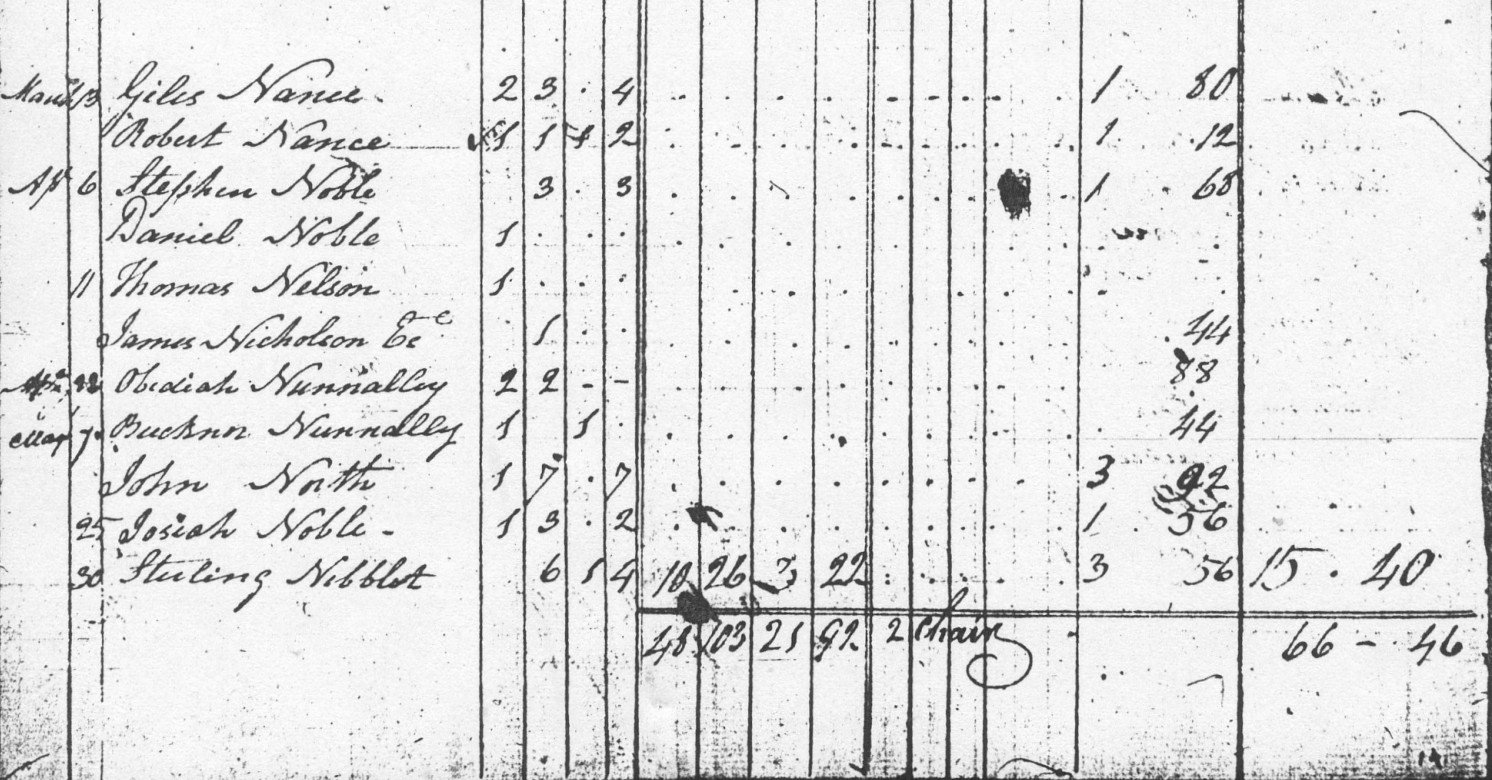 March 13 Giles Nance 2 3 . 4 1 80
Robert Nance 1 1 1 2 1 12
Ap 6 Stephen Noble 3 . 3 1 68
Daniel Noble 1
11 Thomas Nelson 1
James Nicholson Ec 1 44
22 Obediah Nunnalley 2 2 - - 88
May 7 Bucknor Nunnally 1 1 44
John North 1 7 . 7 3 92
25 Josiah Noble - 1 3 . 2 1 56
30 Sterling Nibblet 6 1 4 10 26 3 22 3 56 15 . 40
48 103 21 92 2 Chair 66 - 46